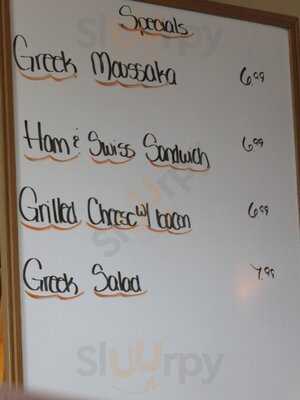 Specials
Greek Moussaka 6.99
Ham & Swiss Sandwich 6.99
Grilled Cheese w/ bacon 6.99
Greek Salad 7.99
Slurrpy
Slurrpy
Slurrpy